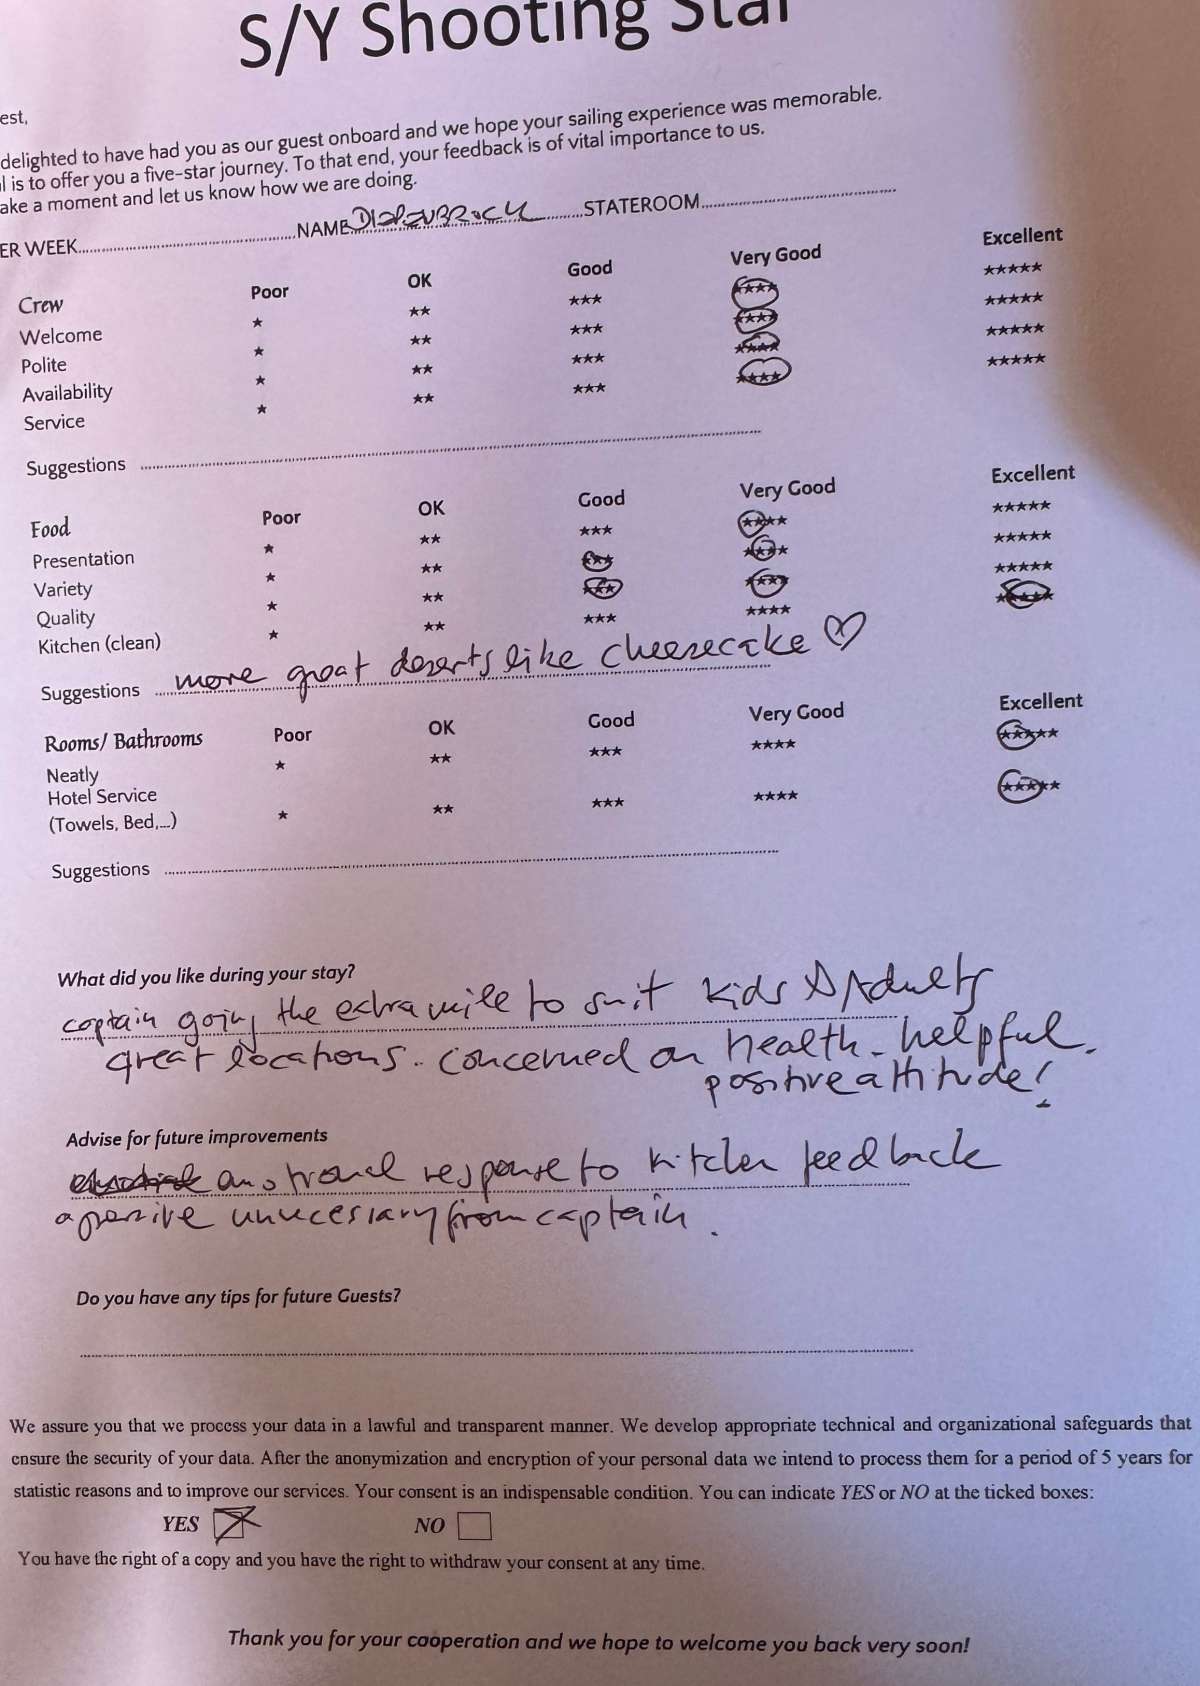 S/Y Shooting Star
est,
delighted to have had you as our guest onboard and we hope your sailing experience was memorable.
l is to offer you a five-star journey. To that end, your feedback is of vital importance to us.
ake a moment and let us know how we are doing.
ER WEEK NAME STATEROOM
Crew Poor OK Good Very Good Excellent
Welcome ★ ★★ ★★★ ★★★★ ★★★★★
Polite ★ ★★ ★★★ ★★★★ ★★★★★
Availability ★ ★★ ★★★ ★★★★ ★★★★★
Service ★ ★★ ★★★ ★★★★ ★★★★★
Suggestions
Food Poor OK Good Very Good Excellent
Presentation ★ ★★ ★★★ ★★★★ ★★★★★
Variety ★ ★★ ★★★ ★★★★ ★★★★★
Quality ★ ★★ ★★★ ★★★★ ★★★★★
Kitchen (clean) ★ ★★ ★★★ ★★★★ ★★★★★
Suggestions more great deserts like cheesecake ♡
Rooms/ Bathrooms Poor OK Good Very Good Excellent
Neatly ★ ★★ ★★★ ★★★★ ★★★★★
Hotel Service
(Towels, Bed,...) ★ ★★ ★★★ ★★★★ ★★★★★
Suggestions
What did you like during your stay?
captain going the extra mile to suit kids & Adults
great locations. concerned on health - helpful.
positive attitude!
Advise for future improvements
response to kitchen feedback
unnecessary from captain.
Do you have any tips for future Guests?
We assure you that we process your data in a lawful and transparent manner. We develop appropriate technical and organizational safeguards that
ensure the security of your data. After the anonymization and encryption of your personal data we intend to process them for a period of 5 years for
statistic reasons and to improve our services. Your consent is an indispensable condition. You can indicate YES or NO at the ticked boxes:
YES NO
You have the right of a copy and you have the right to withdraw your consent at any time.
Thank you for your cooperation and we hope to welcome you back very soon!